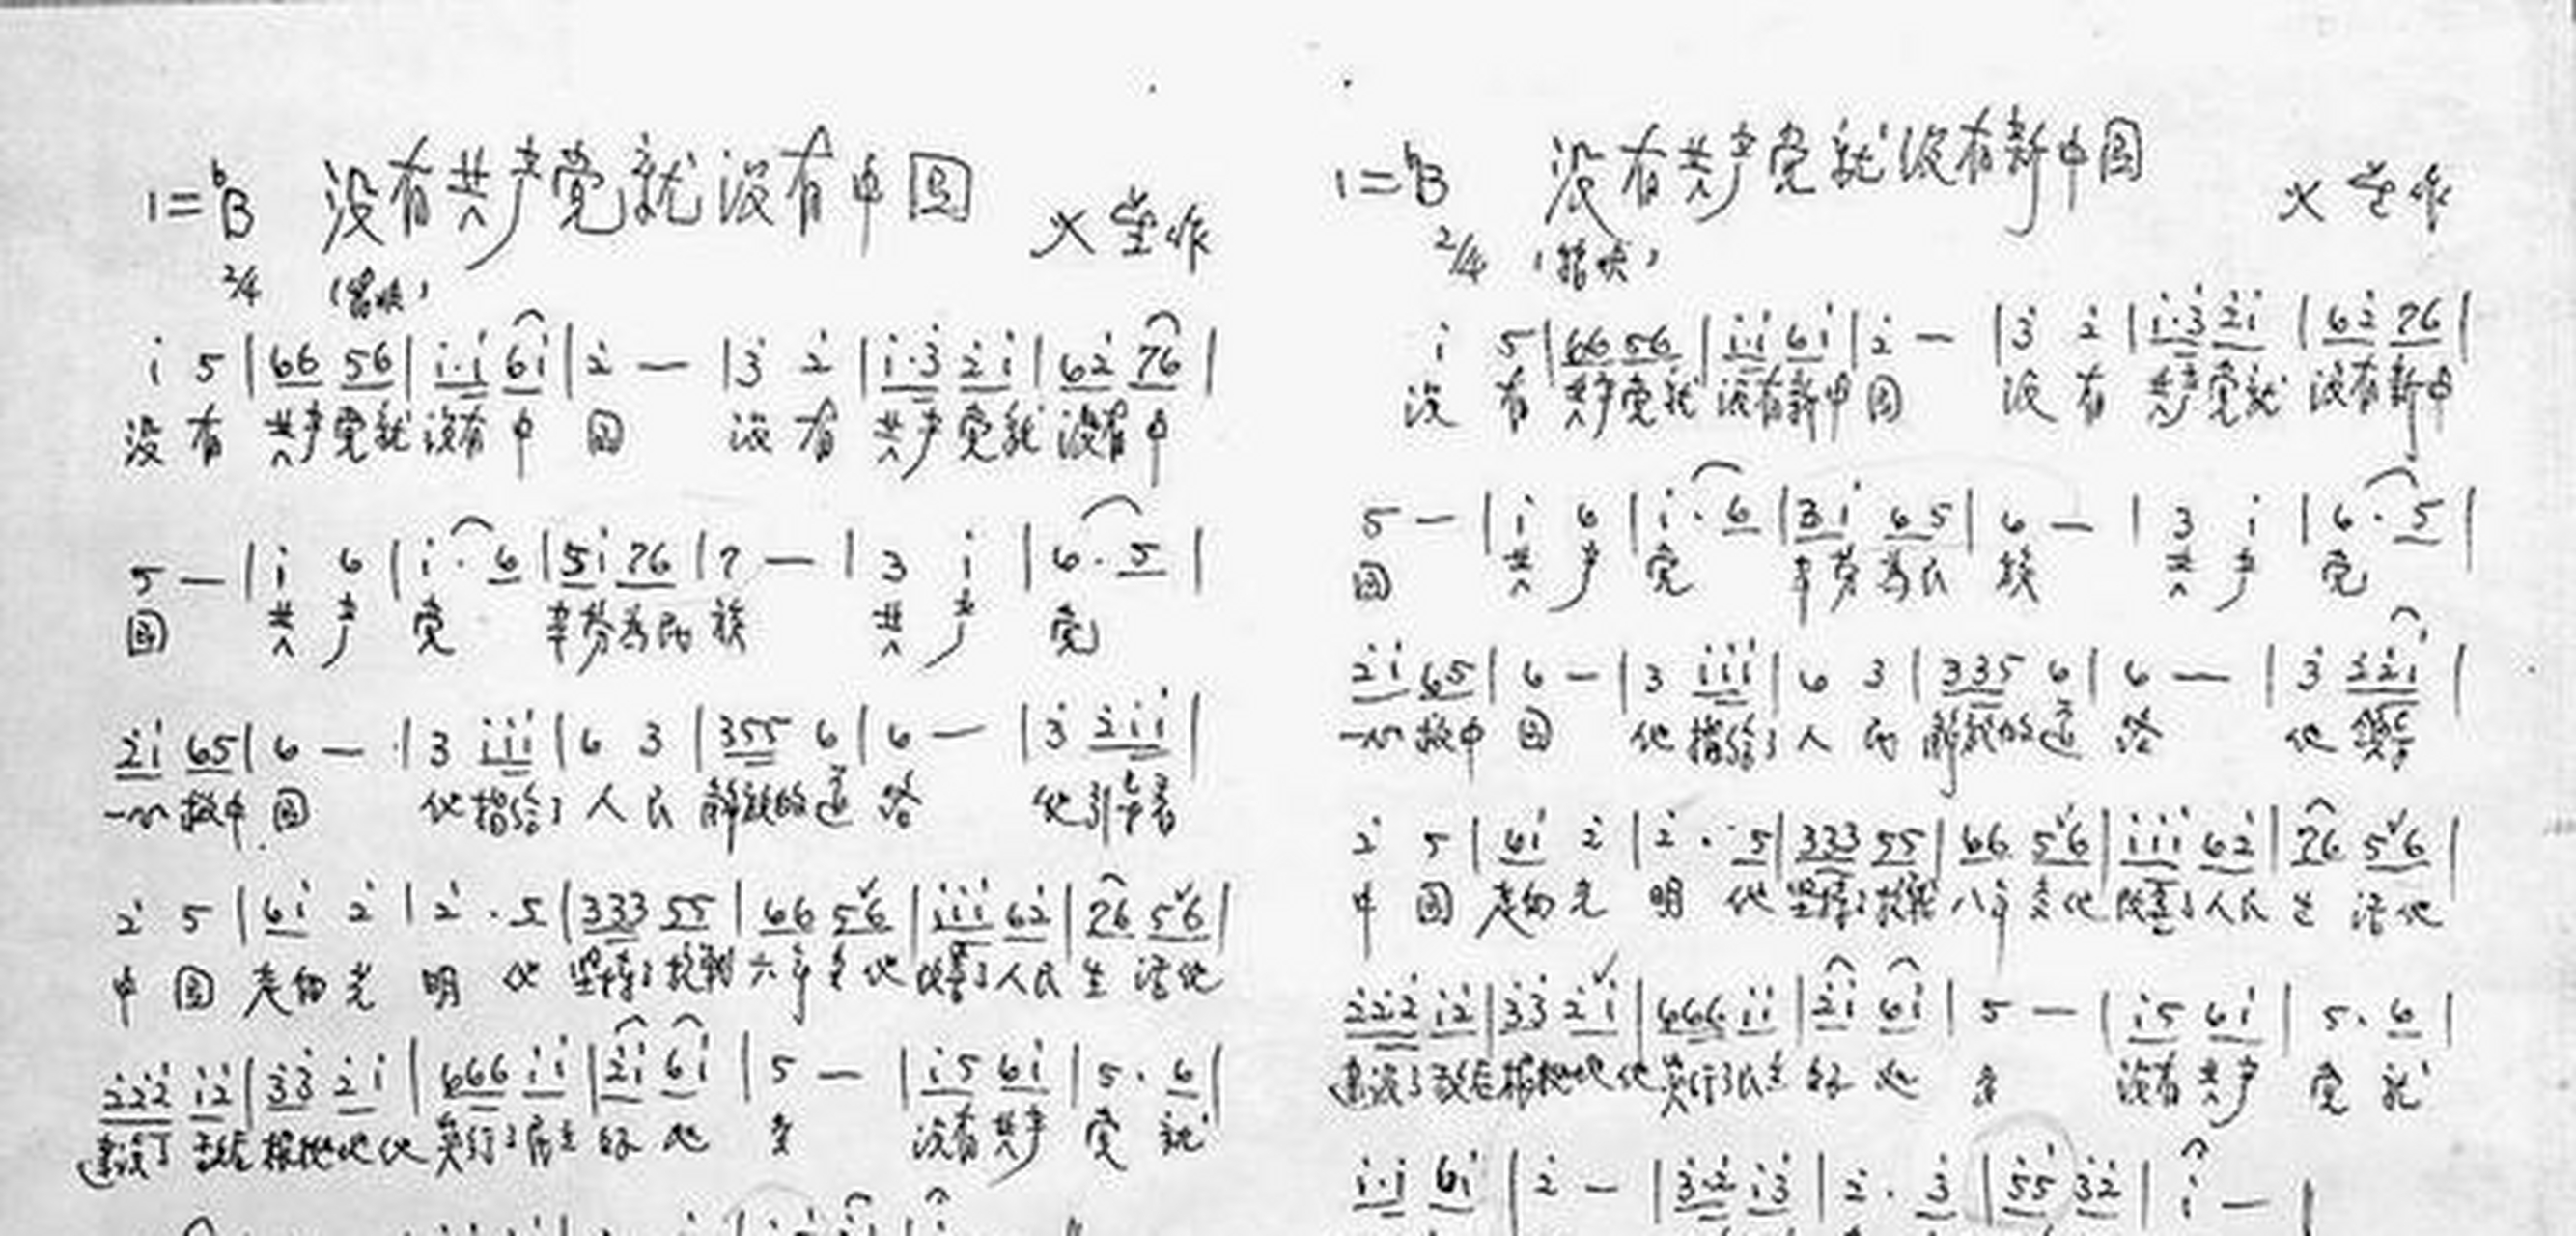 1=ᵇB 没有共产党就没有中国 火 星 作
2/4 (稍快)
i 5 | 66 56 | i·i 6i | 2 — | 3 2 | i·3 2i | 62 76 |
没 有 共产党就 没有 中 国 没 有 共产党就 没有 中
5 — | i 6 | i · 6 | 5i 76 | 7 — | 3 i | 6 · 5 |
国 共 产 党 辛劳为民 族 共 产 党
2i 65 | 6 — | 3 iii | 6 3 | 355 6 | 6 — | 3 2ii |
一心救中 国 他指给了 人 民 解放的道 路 他引导着
2 5 | 6i 2 | 2 · 5 | 333 55 | 66 56 | iii 62 | 76 56 |
中 国 走向光 明 他 坚持了抗战 六年多他 改善了人民 生 活他
222 i2 | 33 2i | 666 ii | 2i 6i | 5 — | i5 6i | 5 · 6 |
建设了敌后根据地他 实行了民主 好 处 多 没有共产 党 就
1=ᵇB 没有共产党就没有新中国 火 星 作
2/4 (稍快)
i 5 | 66 56 | i·i 6i | 2 — | 3 2 | i·3 2i | 62 76 |
没 有 共产党就 没有新中 国 没 有 共产党就 没有新中
5 — | i 6 | i · 6 | 3i 65 | 6 — | 3 i | 6 · 5 |
国 共 产 党 辛劳为民 族 共 产 党
2i 65 | 6 — | 3 iii | 6 3 | 335 6 | 6 — | 3 22i |
一心救中 国 他指给了 人 民 解放的道 路 他 领导
2 5 | 6i 2 | 2 · 5 | 333 55 | 66 56 | iii 62 | 76 56 |
中 国 走向光 明 他 坚持了抗战 八年多他 改善了人民 生 活他
222 i2 | 33 2i | 666 ii | 2i 6i | 5 — | i5 6i | 5 · 6 |
建设了敌后根据地他 实行了民主 好 处 多 没有共产 党 就
i·i 6i | 2 — | 3·2 i3 | 2 · 3 | 55 32 | i — |